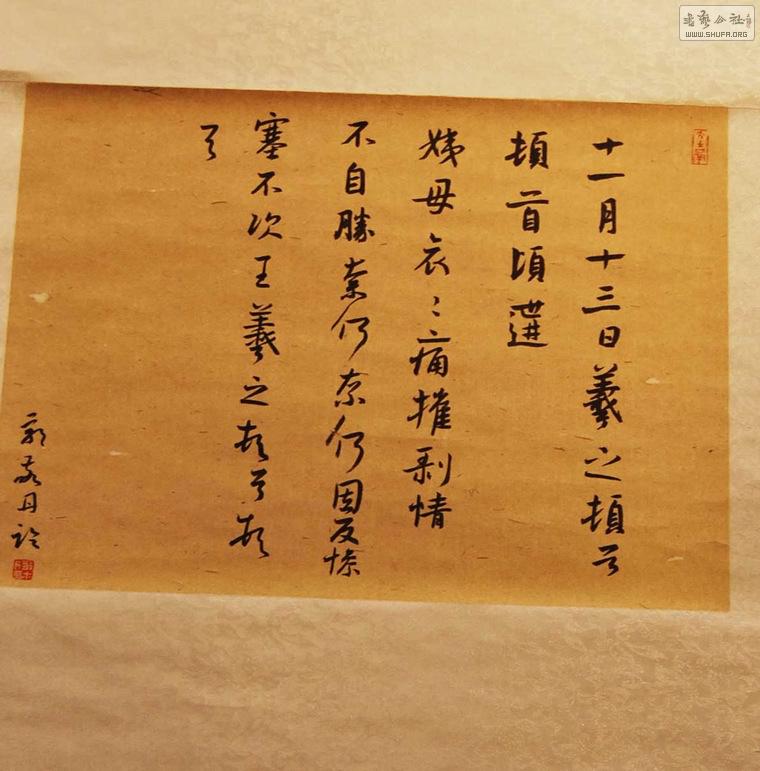 十一月十三日羲之頓首
頓首頃遘
姨母哀〻痛摧剥情
不自勝奈何奈何因反慘
塞不次王羲之頓首頓
首
书艺公社
WWW.SHUFA.ORG